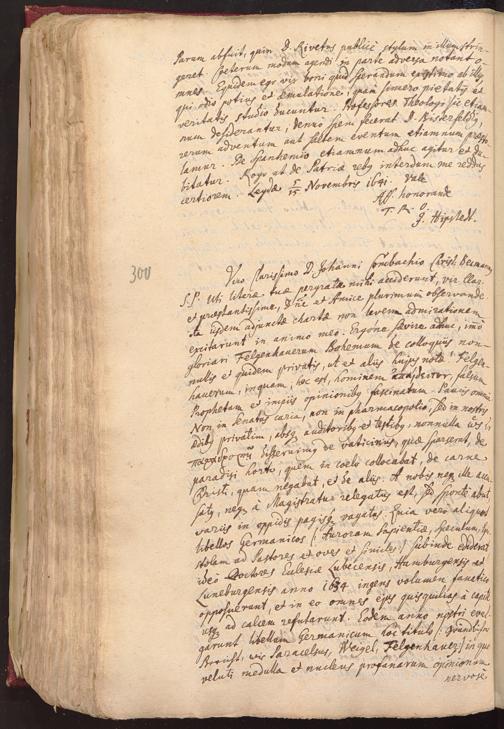 Parum abfuit, quin D. Rivetus publicè stylum in illum strin-
geret. Ceterum modum agendi in parte adversa notant o-
mnes. Quid em ergo vir boni quid sperandum ab illis,
qui odio potius et aemulatione, quam sincero pietatis et
veritatis studio ducuntur. Professores Theologi sic etiam
num desiderantur, denuò spem fecerat D. Bisterfeldius,
rerum adventum aut saltem eventum etiamnum praesto-
lamur. De Spanhemio etiamnum adhuc agitur et du-
bitatur. Rogo ut de Patriae rebus interdum me reddas
certiorem. Leydae 5/15 Novembris 1641. Vale
Aff. honorande
T. R. O.
J. Hipsted.
300
Viro Clarissimo D. Johanni Combachio Christ. Becmann
S. P. Uti literae tuae pergratae mihi acciderunt, vir Clar.
et praestantissime, Dne et Amice plurimum observande
ita iisdem adjunctae chartae non levem admirationem
excitarunt in animo meo. Ergone saevire adhuc, imò
gloriari Felgenhauerum Bohemum de colloquiis non-
nullis et quidem privatis, ut et aliis hujus notae? Felgen-
hauerum, inquam, hoc est, hominem, falsum
Prophetam et impiis opinionibus fascinatum. Paucis omnia
Non, in Senatus curia, non in pharmacopolio, sed in nostris
aedibus privatim, absque auditoribus et testibus, nonnulla
disseruimus de vaticiniis, quae spersit, de
paradisi horto, quem in coelo collocabat, de carne
Christi, quam negabat, et de aliis. A nobis neque ille accu-
satus, neque à Magistratu relegatus est, sed sponte abiit
variis in oppidis pagisque vagatus. Quia verò aliquos
libellos Germanicos (Auroram Sapientiae, speculum,
stolam ad Pastores et oves et similes) subinde ederet
ideò Doctores Ecclesiae Lubecensis, Hamburgensis et
Luneburgensis anno 1634 ingens volumen fanaticis
opposuerunt, et in eo omnes ejus quisquilias à capite
usque ad calcem refutarunt. Eodem anno nostri evul-
garunt libellum Germanicum hoc titulo:
Bericht, wis Paracelsus, Weigel, Felgenhauer) in quo
veluti medulla et nucleus profanarum opinionum
nervosè